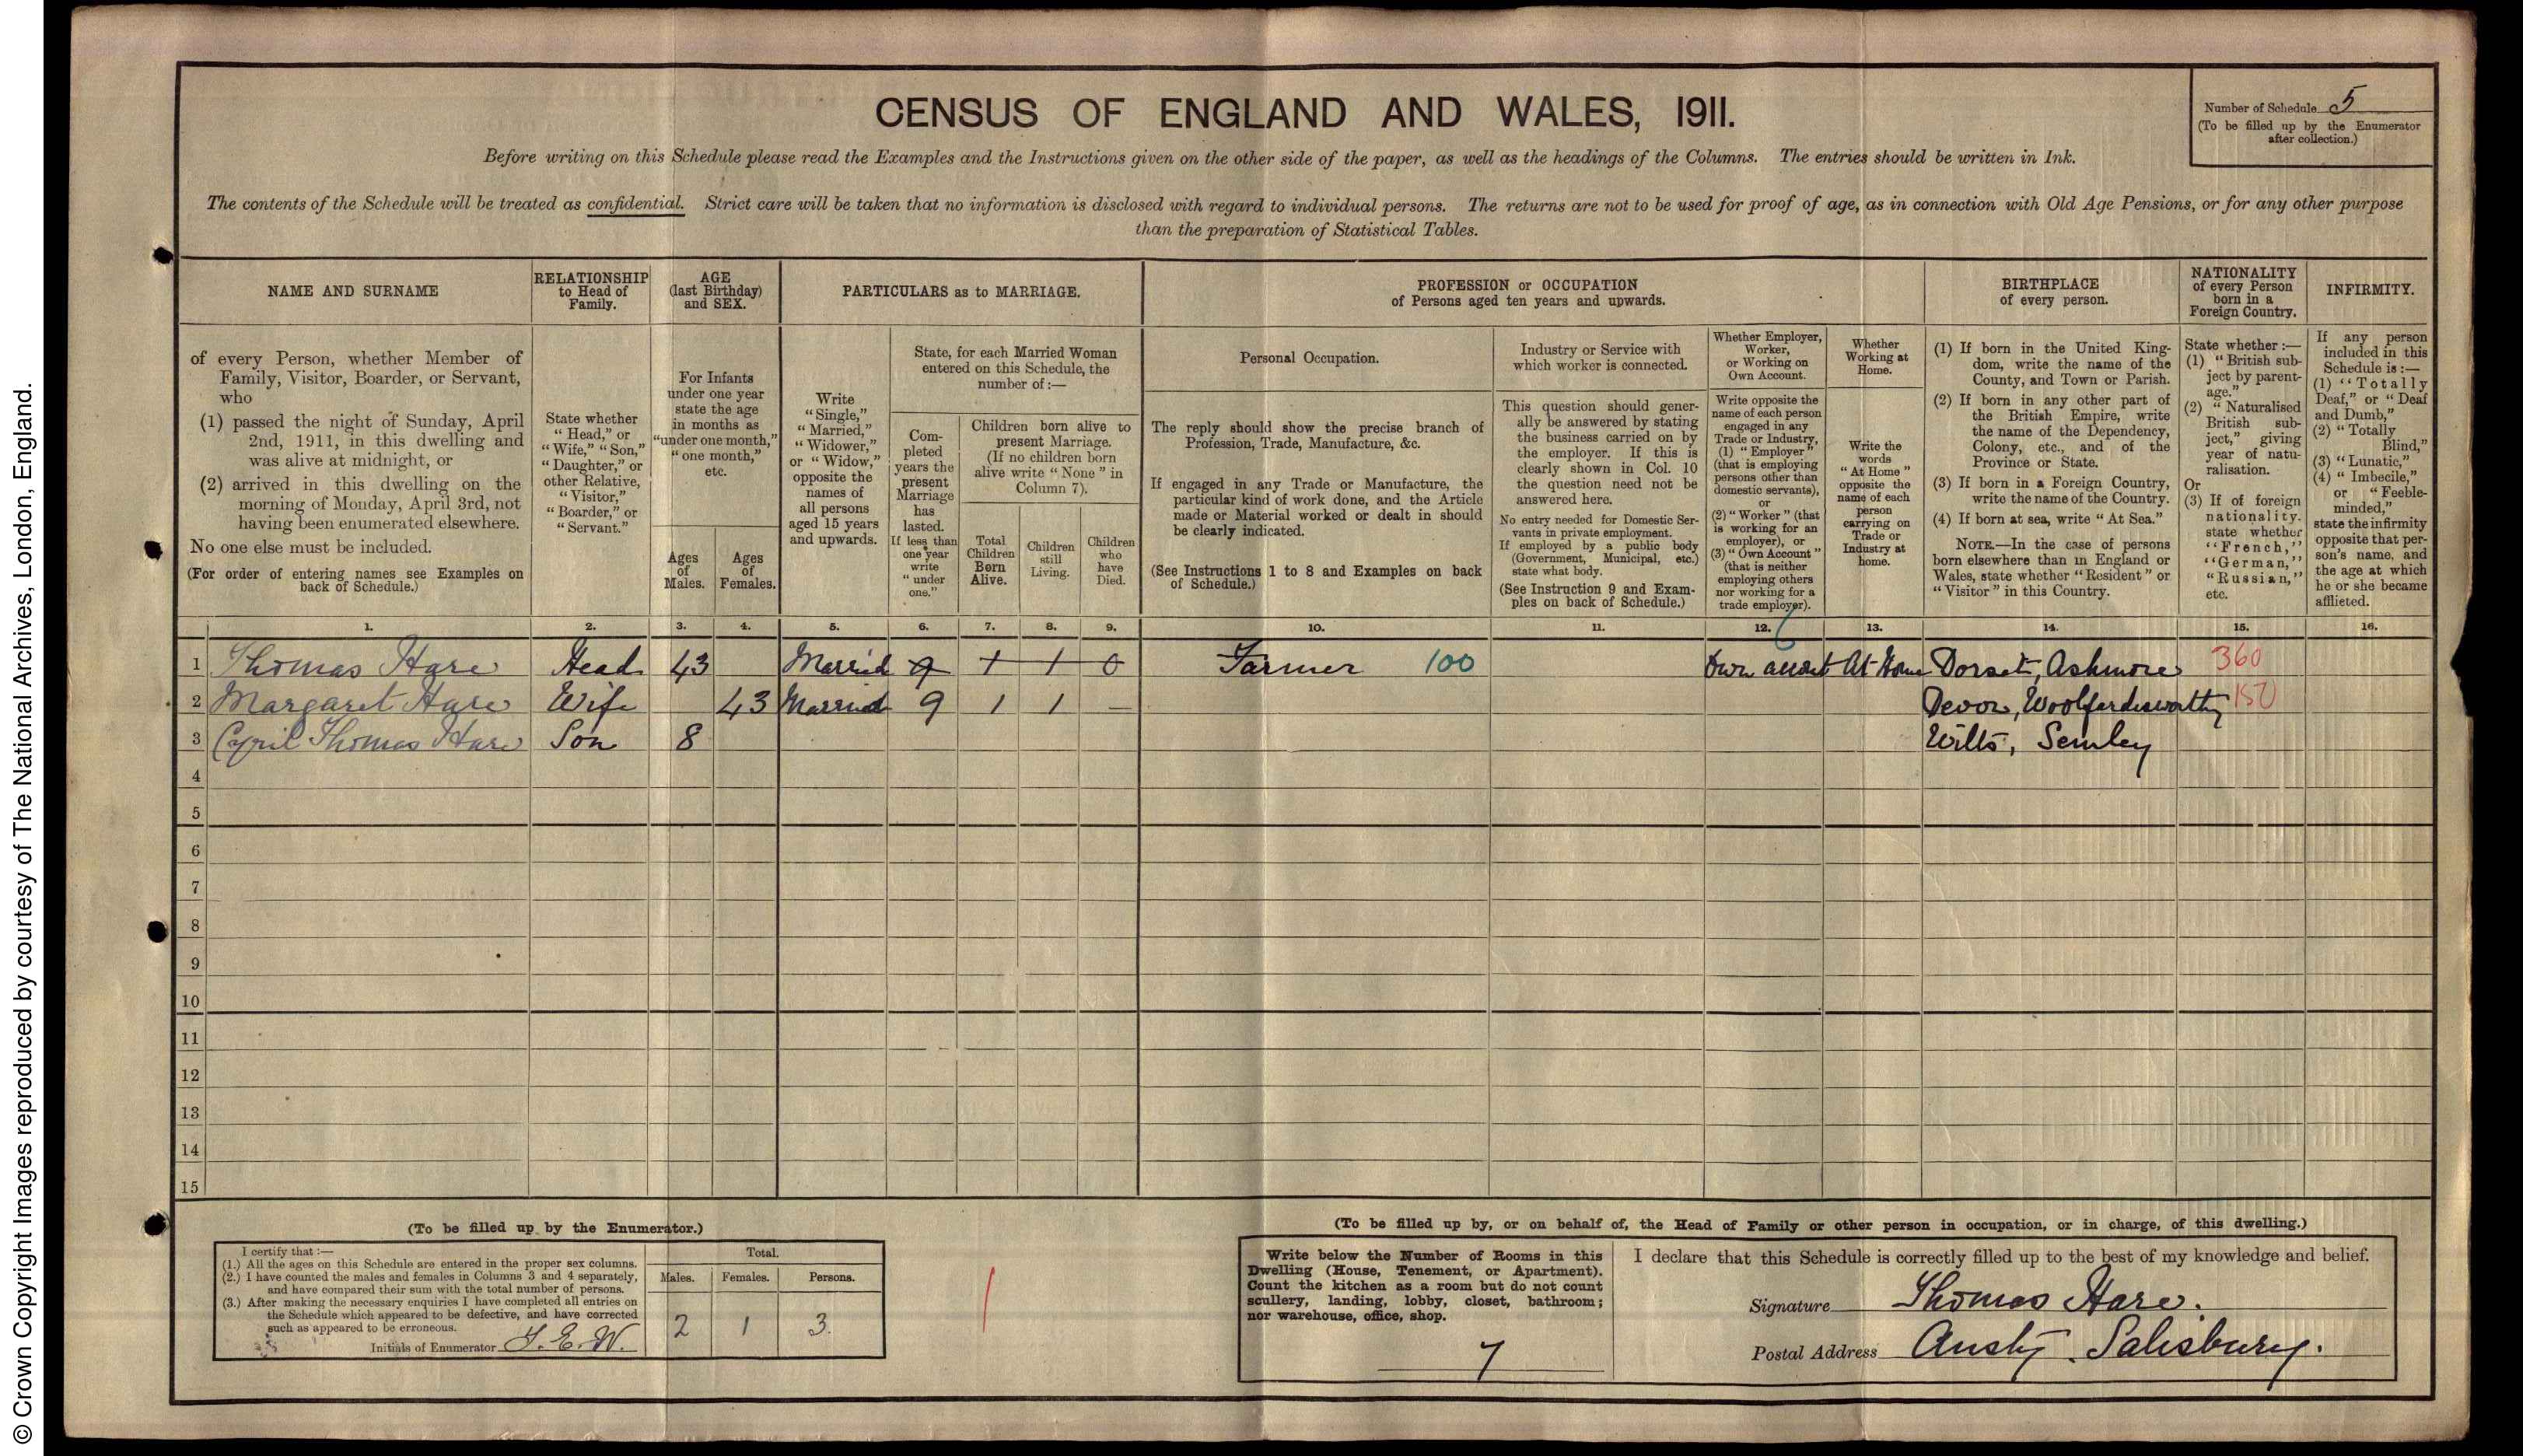 © Crown Copyright Images reproduced by courtesy of The National Archives, London, England.
CENSUS OF ENGLAND AND WALES, 1911.
Number of Schedule 5
(To be filled up by the Enumerator
after collection.)
Before writing on this Schedule please read the Examples and the Instructions given on the other side of the paper, as well as the headings of the Columns. The entries should be written in Ink.
The contents of the Schedule will be treated as confidential. Strict care will be taken that no information is disclosed with regard to individual persons. The returns are not to be used for proof of age, as in connection with Old Age Pensions, or for any other purpose
than the preparation of Statistical Tables.
NAME AND SURNAME
of every Person, whether Member of
Family, Visitor, Boarder, or Servant,
who
(1) passed the night of Sunday, April
2nd, 1911, in this dwelling and
was alive at midnight, or
(2) arrived in this dwelling on the
morning of Monday, April 3rd, not
having been enumerated elsewhere.
No one else must be included.
(For order of entering names see Examples on
back of Schedule.)
RELATIONSHIP
to Head of
Family.
State whether
"Head," or
"Wife," "Son,"
"Daughter," or
other Relative,
"Visitor,"
"Boarder," or
"Servant."
AGE
(last Birthday)
and SEX.
For Infants
under one year
state the age
in months as
"under one month,"
"one month,"
etc.
Ages
of
Males.
Ages
of
Females.
PARTICULARS as to MARRIAGE.
Write
"Single,"
"Married,"
"Widower,"
or "Widow,"
opposite the
names of
all persons
aged 15 years
and upwards.
State, for each Married Woman
entered on this Schedule, the
number of:—
Com-
pleted
years the
present
Marriage
has
lasted.
If less than
one year
write
"under
one."
Children born alive to
present Marriage.
(If no children born
alive write "None" in
Column 7).
Total
Children
Born
Alive.
Children
still
Living.
Children
who
have
Died.
PROFESSION or OCCUPATION
of Persons aged ten years and upwards.
Personal Occupation.
The reply should show the precise branch of
Profession, Trade, Manufacture, &c.
If engaged in any Trade or Manufacture, the
particular kind of work done, and the Article
made or Material worked or dealt in should
be clearly indicated.
(See Instructions 1 to 8 and Examples on back
of Schedule.)
Industry or Service with
which worker is connected.
This question should gener-
ally be answered by stating
the business carried on by
the employer. If this is
clearly shown in Col. 10
the question need not be
answered here.
No entry needed for Domestic Ser-
vants in private employment.
If employed by a public body
(Government, Municipal, etc.)
state what body.
(See Instruction 9 and Exam-
ples on back of Schedule.)
Whether Employer,
Worker,
or Working on
Own Account.
Write opposite the
name of each person
engaged in any
Trade or Industry,
(1) "Employer"
(that is employing
persons other than
domestic servants),
or
(2) "Worker" (that
is working for an
employer), or
(3) "Own Account"
(that is neither
employing others
nor working for a
trade employer).
Whether
Working at
Home.
Write the
words
"At Home"
opposite the
name of each
person
carrying on
Trade or
Industry at
home.
BIRTHPLACE
of every person.
(1) If born in the United King-
dom, write the name of the
County, and Town or Parish.
(2) If born in any other part of
the British Empire, write
the name of the Dependency,
Colony, etc., and of the
Province or State.
(3) If born in a Foreign Country,
write the name of the Country.
(4) If born at sea, write "At Sea."
NOTE.—In the case of persons
born elsewhere than in England or
Wales, state whether "Resident" or
"Visitor" in this Country.
NATIONALITY
of every Person
born in a
Foreign Country.
State whether:—
(1) "British sub-
ject by parent-
age."
(2) "Naturalised
British sub-
ject," giving
year of natu-
ralisation.
Or
(3) If of foreign
nationality,
state whether
"French,"
"German,"
"Russian,"
etc.
INFIRMITY.
If any person
included in this
Schedule is:—
(1) "Totally
Deaf," or "Deaf
and Dumb,"
(2) "Totally
Blind,"
(3) "Lunatic,"
(4) "Imbecile,"
or "Feeble-
minded,"
state the infirmity
opposite that per-
son's name, and
the age at which
he or she became
afflicted.
1. 2. 3. 4. 5. 6. 7. 8. 9. 10. 11. 12. 13. 14. 15. 16.
1 Thomas Hare Head 43 Married 9 1 1 0 Farmer 100 Own account At Home Dorset, Ashmore 360
2 Margaret Hare Wife 43 Married 9 1 1 — Devon, Woolfardisworthy 150
3 Cyril Thomas Hare Son 8 Wilts, Semley
4
5
6
7
8
9
10
11
12
13
14
15
(To be filled up by the Enumerator.)
I certify that:—
(1.) All the ages on this Schedule are entered in the proper sex columns.
(2.) I have counted the males and females in Columns 3 and 4 separately,
and have compared their sum with the total number of persons.
(3.) After making the necessary enquiries I have completed all entries on
the Schedule which appeared to be defective, and have corrected
such as appeared to be erroneous.
Initials of Enumerator
Total.
Males. Females. Persons.
2 1 3
(To be filled up by, or on behalf of, the Head of Family or other person in occupation, or in charge, of this dwelling.)
Write below the Number of Rooms in this
Dwelling (House, Tenement, or Apartment).
Count the kitchen as a room but do not count
scullery, landing, lobby, closet, bathroom;
nor warehouse, office, shop.
7
I declare that this Schedule is correctly filled up to the best of my knowledge and belief.
Signature Thomas Hare.
Postal Address Ansty Salisbury.